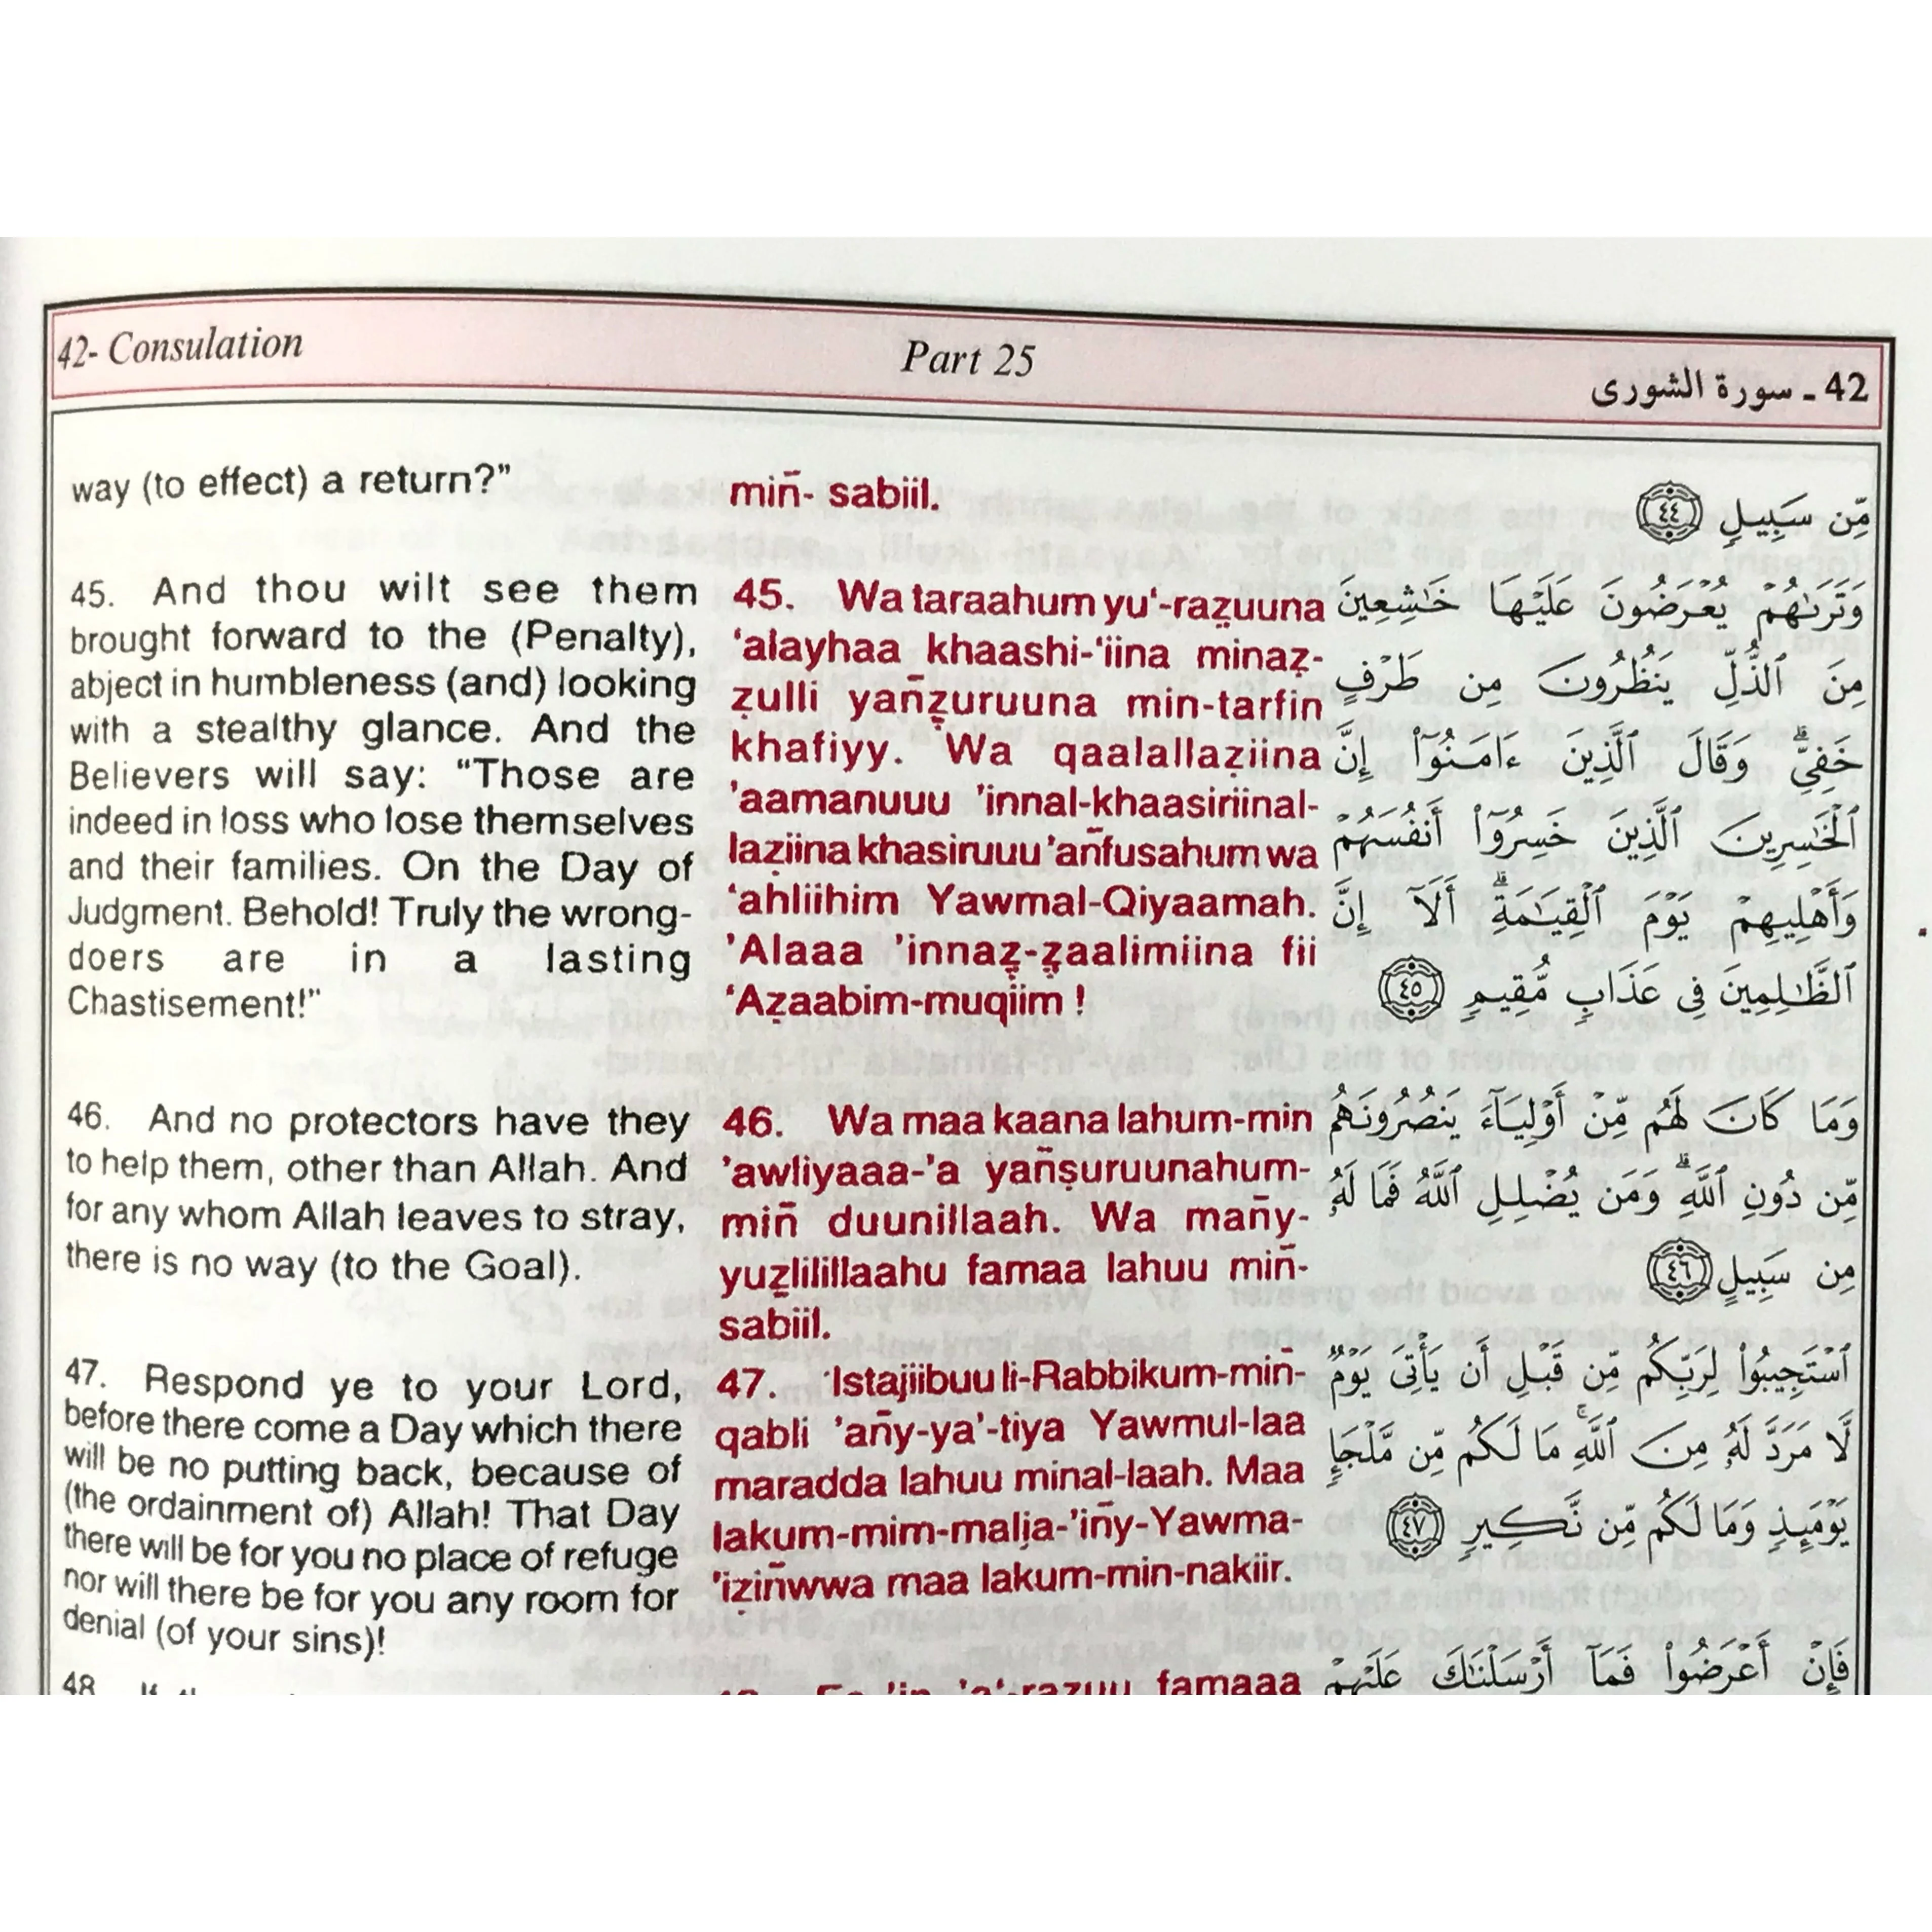 42- Consulation
Part 25
42 ـ سورة الشورى
way (to effect) a return?"
45. And thou wilt see them
brought forward to the (Penalty),
abject in humbleness (and) looking
with a stealthy glance. And the
Believers will say: "Those are
indeed in loss who lose themselves
and their families. On the Day of
Judgment. Behold! Truly the wrong-
doers are in a lasting
Chastisement!"
46. And no protectors have they
to help them, other than Allah. And
for any whom Allah leaves to stray,
there is no way (to the Goal).
47. Respond ye to your Lord,
before there come a Day which there
will be no putting back, because of
(the ordainment of) Allah! That Day
there will be for you no place of refuge
nor will there be for you any room for
denial (of your sins)!
48
min̄- sabiil.
45. Wa taraahum yu‘-raẓuuna
‘alayhaa khaashi-‘iina minaẓ-
ẓulli yan̄ẓuruuna min-tarfin
khafiyy. Wa qaalallaẓiina
’aamanuuu ’innal-khaasiriinal-
laẓiina khasiruuu ’an̄fusahum wa
‘ahliihim Yawmal-Qiyaamah.
’Alaaa ’innaẓ-ẓaalimiina fii
‘Aẓaabim-muqiim !
46. Wa maa kaana lahum-min
’awliyaaa-’a yan̄ṣuruunahum-
min̄ duunillaah. Wa man̄y-
yuẓlilillaahu famaa lahuu min̄-
sabiil.
47. ‘Istajiibuu li-Rabbikum-min̄-
qabli ’an̄y-ya’-tiya Yawmul-laa
maradda lahuu minal-laah. Maa
lakum-mim-malja-’in̄y-Yawma-
’iẓin̄wwa maa lakum-min-nakiir.
famaaa
مِّن سَبِيلٍ ٤٤
وَتَرَىٰهُمْ يُعْرَضُونَ عَلَيْهَا خَـٰشِعِينَ
مِنَ ٱلذُّلِّ يَنظُرُونَ مِن طَرْفٍ
خَفِيٍّ ۗ وَقَالَ ٱلَّذِينَ ءَامَنُوٓا۟ إِنَّ
ٱلْخَـٰسِرِينَ ٱلَّذِينَ خَسِرُوٓا۟ أَنفُسَهُمْ
وَأَهْلِيهِمْ يَوْمَ ٱلْقِيَـٰمَةِ ۗ أَلَآ إِنَّ
ٱلظَّـٰلِمِينَ فِى عَذَابٍ مُّقِيمٍ ٤٥
وَمَا كَانَ لَهُم مِّنْ أَوْلِيَآءَ يَنصُرُونَهُم
مِّن دُونِ ٱللَّهِ ۗ وَمَن يُضْلِلِ ٱللَّهُ فَمَا لَهُۥ
مِن سَبِيلٍ ٤٦
ٱسْتَجِيبُوا۟ لِرَبِّكُم مِّن قَبْلِ أَن يَأْتِىَ يَوْمٌ
لَّا مَرَدَّ لَهُۥ مِنَ ٱللَّهِ ۚ مَا لَكُم مِّن مَّلْجَإٍ
يَوْمَئِذٍ وَمَا لَكُم مِّن نَّكِيرٍ ٤٧
فَإِنْ أَعْرَضُوا۟ فَمَآ أَرْسَلْنَـٰكَ عَلَيْهِمْ